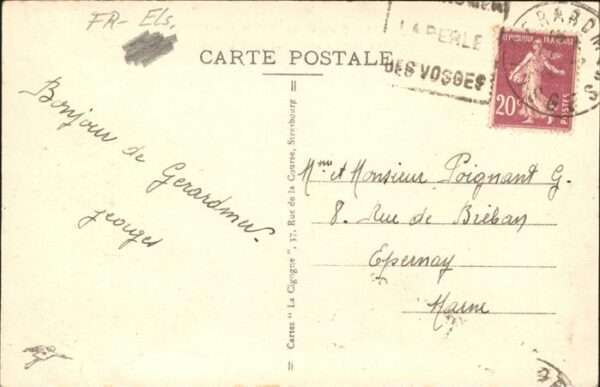 FR- Els.
LA PERLE
DES VOSGES
GERARDMER
REPUBLIQUE FRANÇAISE
20c
POSTES
CARTE POSTALE
Bonjour de
Gérardmer.
Mme et Monsieur Poignant G.
8. Rue de Brèban
Epernay
Marne
Cartes " La Cigogne ", 37, Rue de la Course, Strasbourg